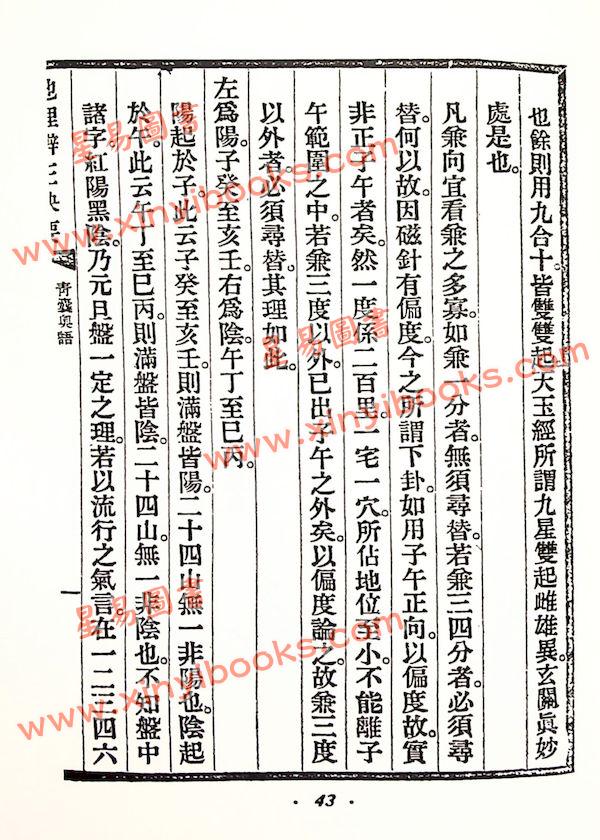 也餘則用九合十。皆雙雙起。大玉經所謂九星雙起雌雄異。玄關眞妙
處是也。
凡兼向宜看兼之多寡。如兼一分者。無須尋替。若兼三四分者。必須尋
替。何以故。因磁針有偏度。今之所謂下卦。如用子午正向。以偏度故。實
非正子午者矣。然一度係二百里。一宅一穴。所佔地位至小。不能離子
午範圍之中。若兼三度以外。已出子午之外矣。以偏度論之。故兼三度
以外者。必須尋替。其理如此。
左爲陽。子癸至亥壬。右爲陰。午丁至巳丙。
陽起於子。此云子癸至亥壬。則滿盤皆陽。二十四山。無一非陽也。陰起
於午。此云午丁至巳丙。則滿盤皆陰。二十四山。無一非陰也。不知盤中
諸字。紅陽黑陰。乃元旦盤一定之理。若以流行之氣言。在一二三四六
青囊奧語
一
43
星易圖書
www.xinyibooks.com
星易圖書
www.xinyibooks.com
星易圖書
www.xinyibooks.com